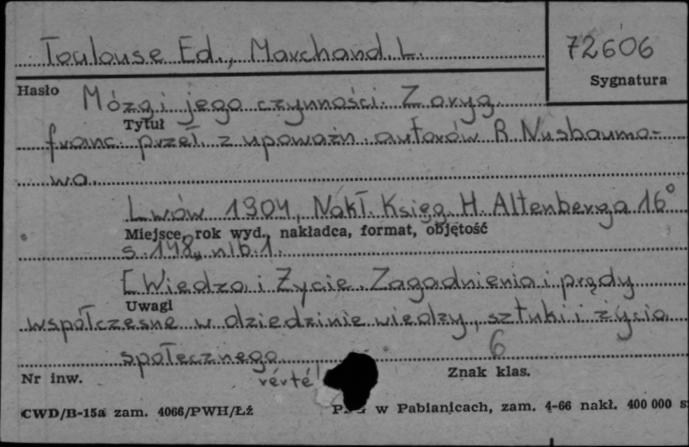 Toulouse Ed., Marchand. L.
72606
Sygnatura
Hasło
Mózg i jego czynności. Z oryg.
Tytuł
franc. przeł. z upoważn. autorów R. Nusbaumo-
wa.
Lwów 1904, Nakł. Księg. H. Altenberga 16°
Miejsce, rok wyd., nakładca, format, objętość
s. 148, nlb. 1.
[Wiedza i Życie. Zagadnienia i prądy
Uwagi
współczesne w dziedzinie wiedzy, sztuki i życia
społecznego
6
Nr inw.
Znak klas.
CWD/B-15a zam. 4066/PWH/Łź
w Pabianicach, zam. 4-66 nakł. 400 000